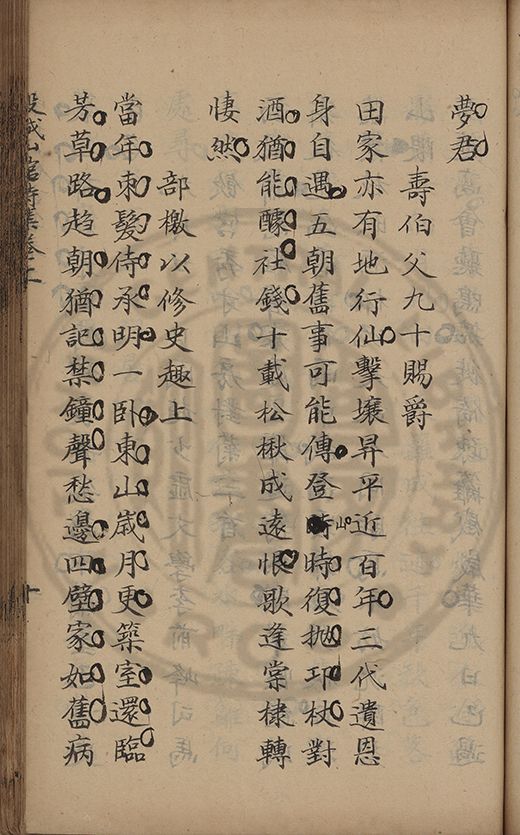 夢君
壽伯父九十賜爵
田家亦有地行仙擊壤昇平近百年三代遺恩
身自遇五朝舊事可能傳登山時復拋邛杖對
酒猶能醵社錢十載松楸成遠恨歌逢棠棣轉
悽然
部檄以修史趣上
當年束髮侍承明一卧東山歲月更築室還臨
芳草路趨朝猶記禁鐘聲愁邊四壁家如舊病
山館詩集卷上
十